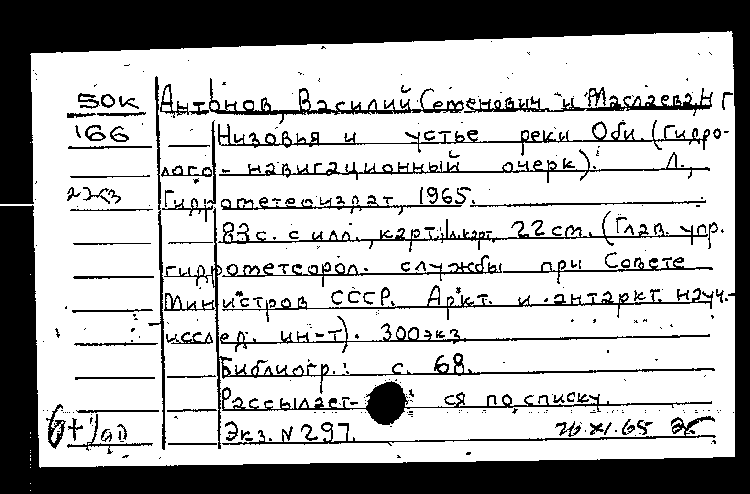 50К Антонов, Василий Семенович и Маслаева, Н Г
166 Низовья и устье реки Оби. (Гидро-
лого-навигационный очерк). Л.,
Гидрометеоиздат, 1965.
83 с. с илл., карт; 1 л. карт. 22 cm. (Глав. упр.
гидрометеорол. службы при Совете
Министров СССР. Аркт. и антаркт. науч.-
исслед. ин-т). 300 экз.
Библиогр.: с. 68.
Рассылает- ся по списку.
Экз. N 297. 26.XI.65